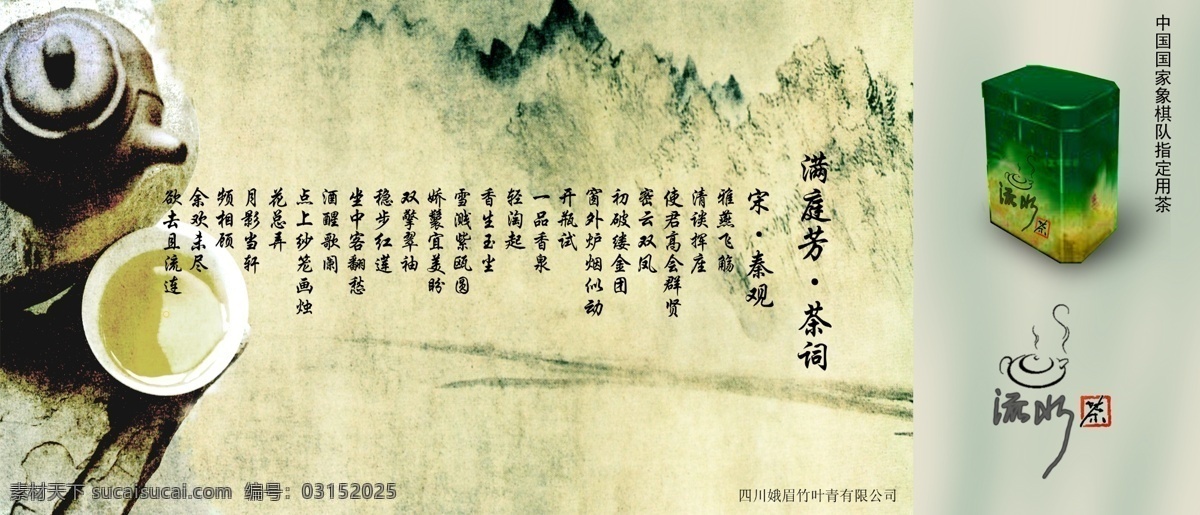 中国国家象棋队指定用茶
流水
茶
满庭芳·茶词
宋·秦观
雅燕飞觞
清谈挥座
使君高会群贤
密云双凤
初破缕金团
窗外炉烟似动
开瓶试
一品香泉
轻淘起
香生玉尘
雪溅紫瓯圆
娇鬟宜美盼
双擎翠袖
稳步红莲
坐中客翻愁
酒醒歌阑
点上纱笼画烛
花总弄
月影当轩
频相顾
余欢未尽
欲去且流连
流水
茶
四川娥眉竹叶青有限公司
素材天下 sucaisucai.com 编号：03152025